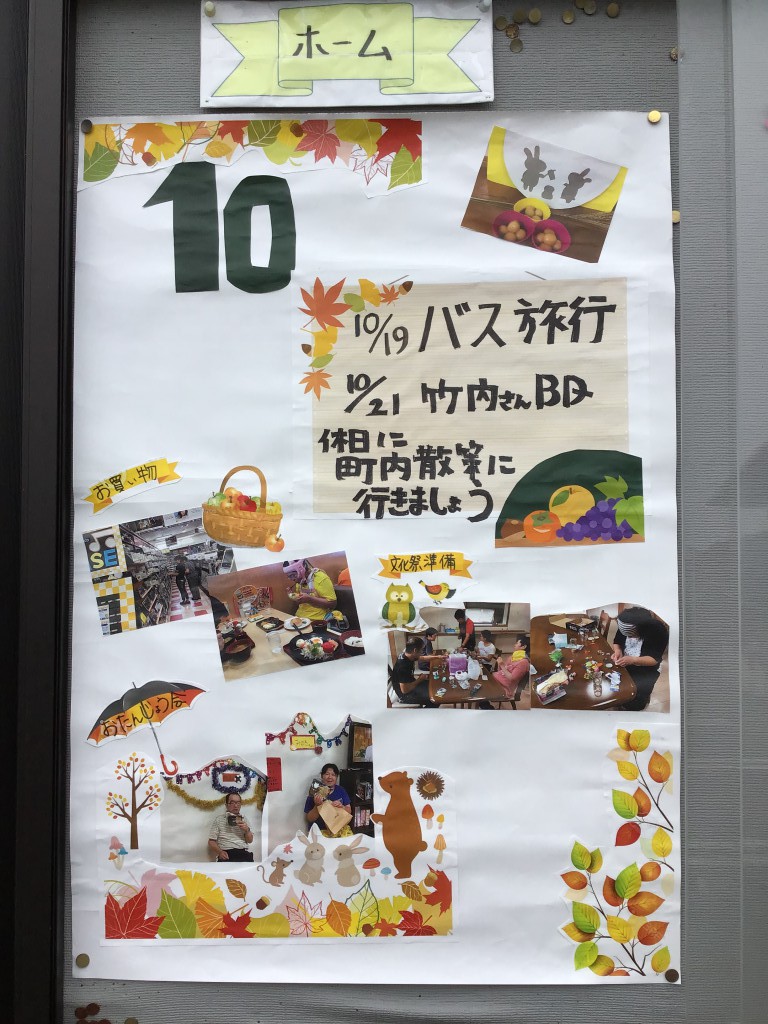 ホーム
10
10/19 バス旅行
10/21 竹内さんBD
休日に
町内散策に
行きましょう
お買い物
SE
文化祭準備
おたんじょう会